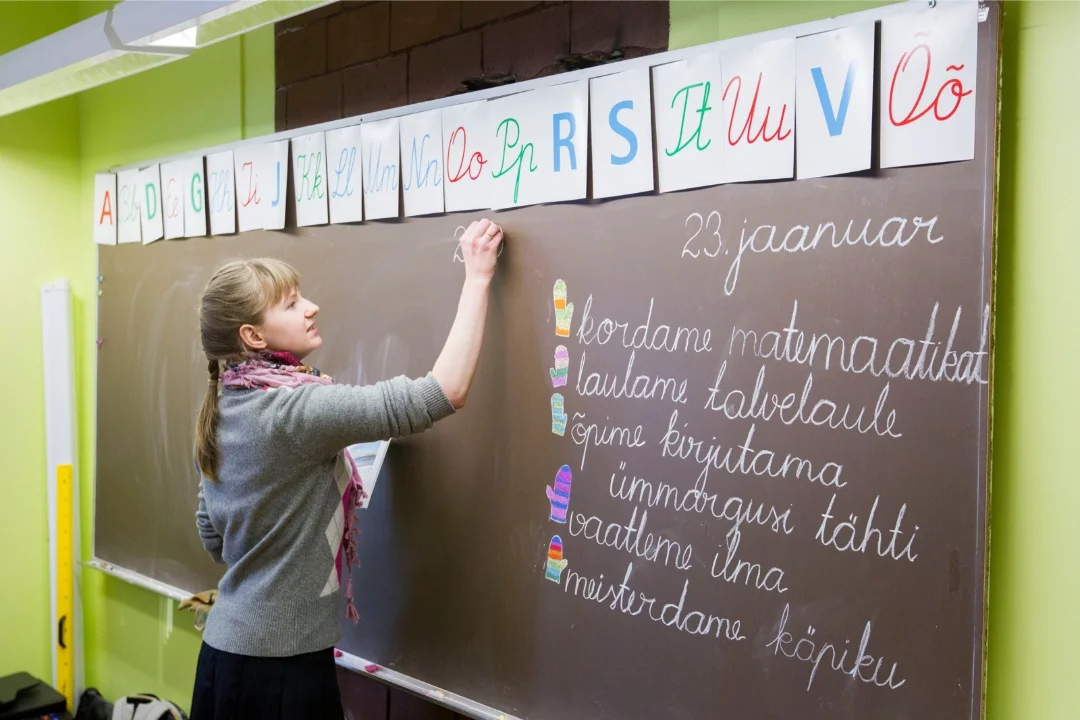 A Bb D Ee G Hh Ii J Kk Ll Mm Nn Oo Pp R S Tt Uu V Õõ
23. jaanuar
kordame matemaatikat
laulame talvelaule
õpime kirjutama
ümmargusi tähti
vaatleme ilma
meisterdame käpiku